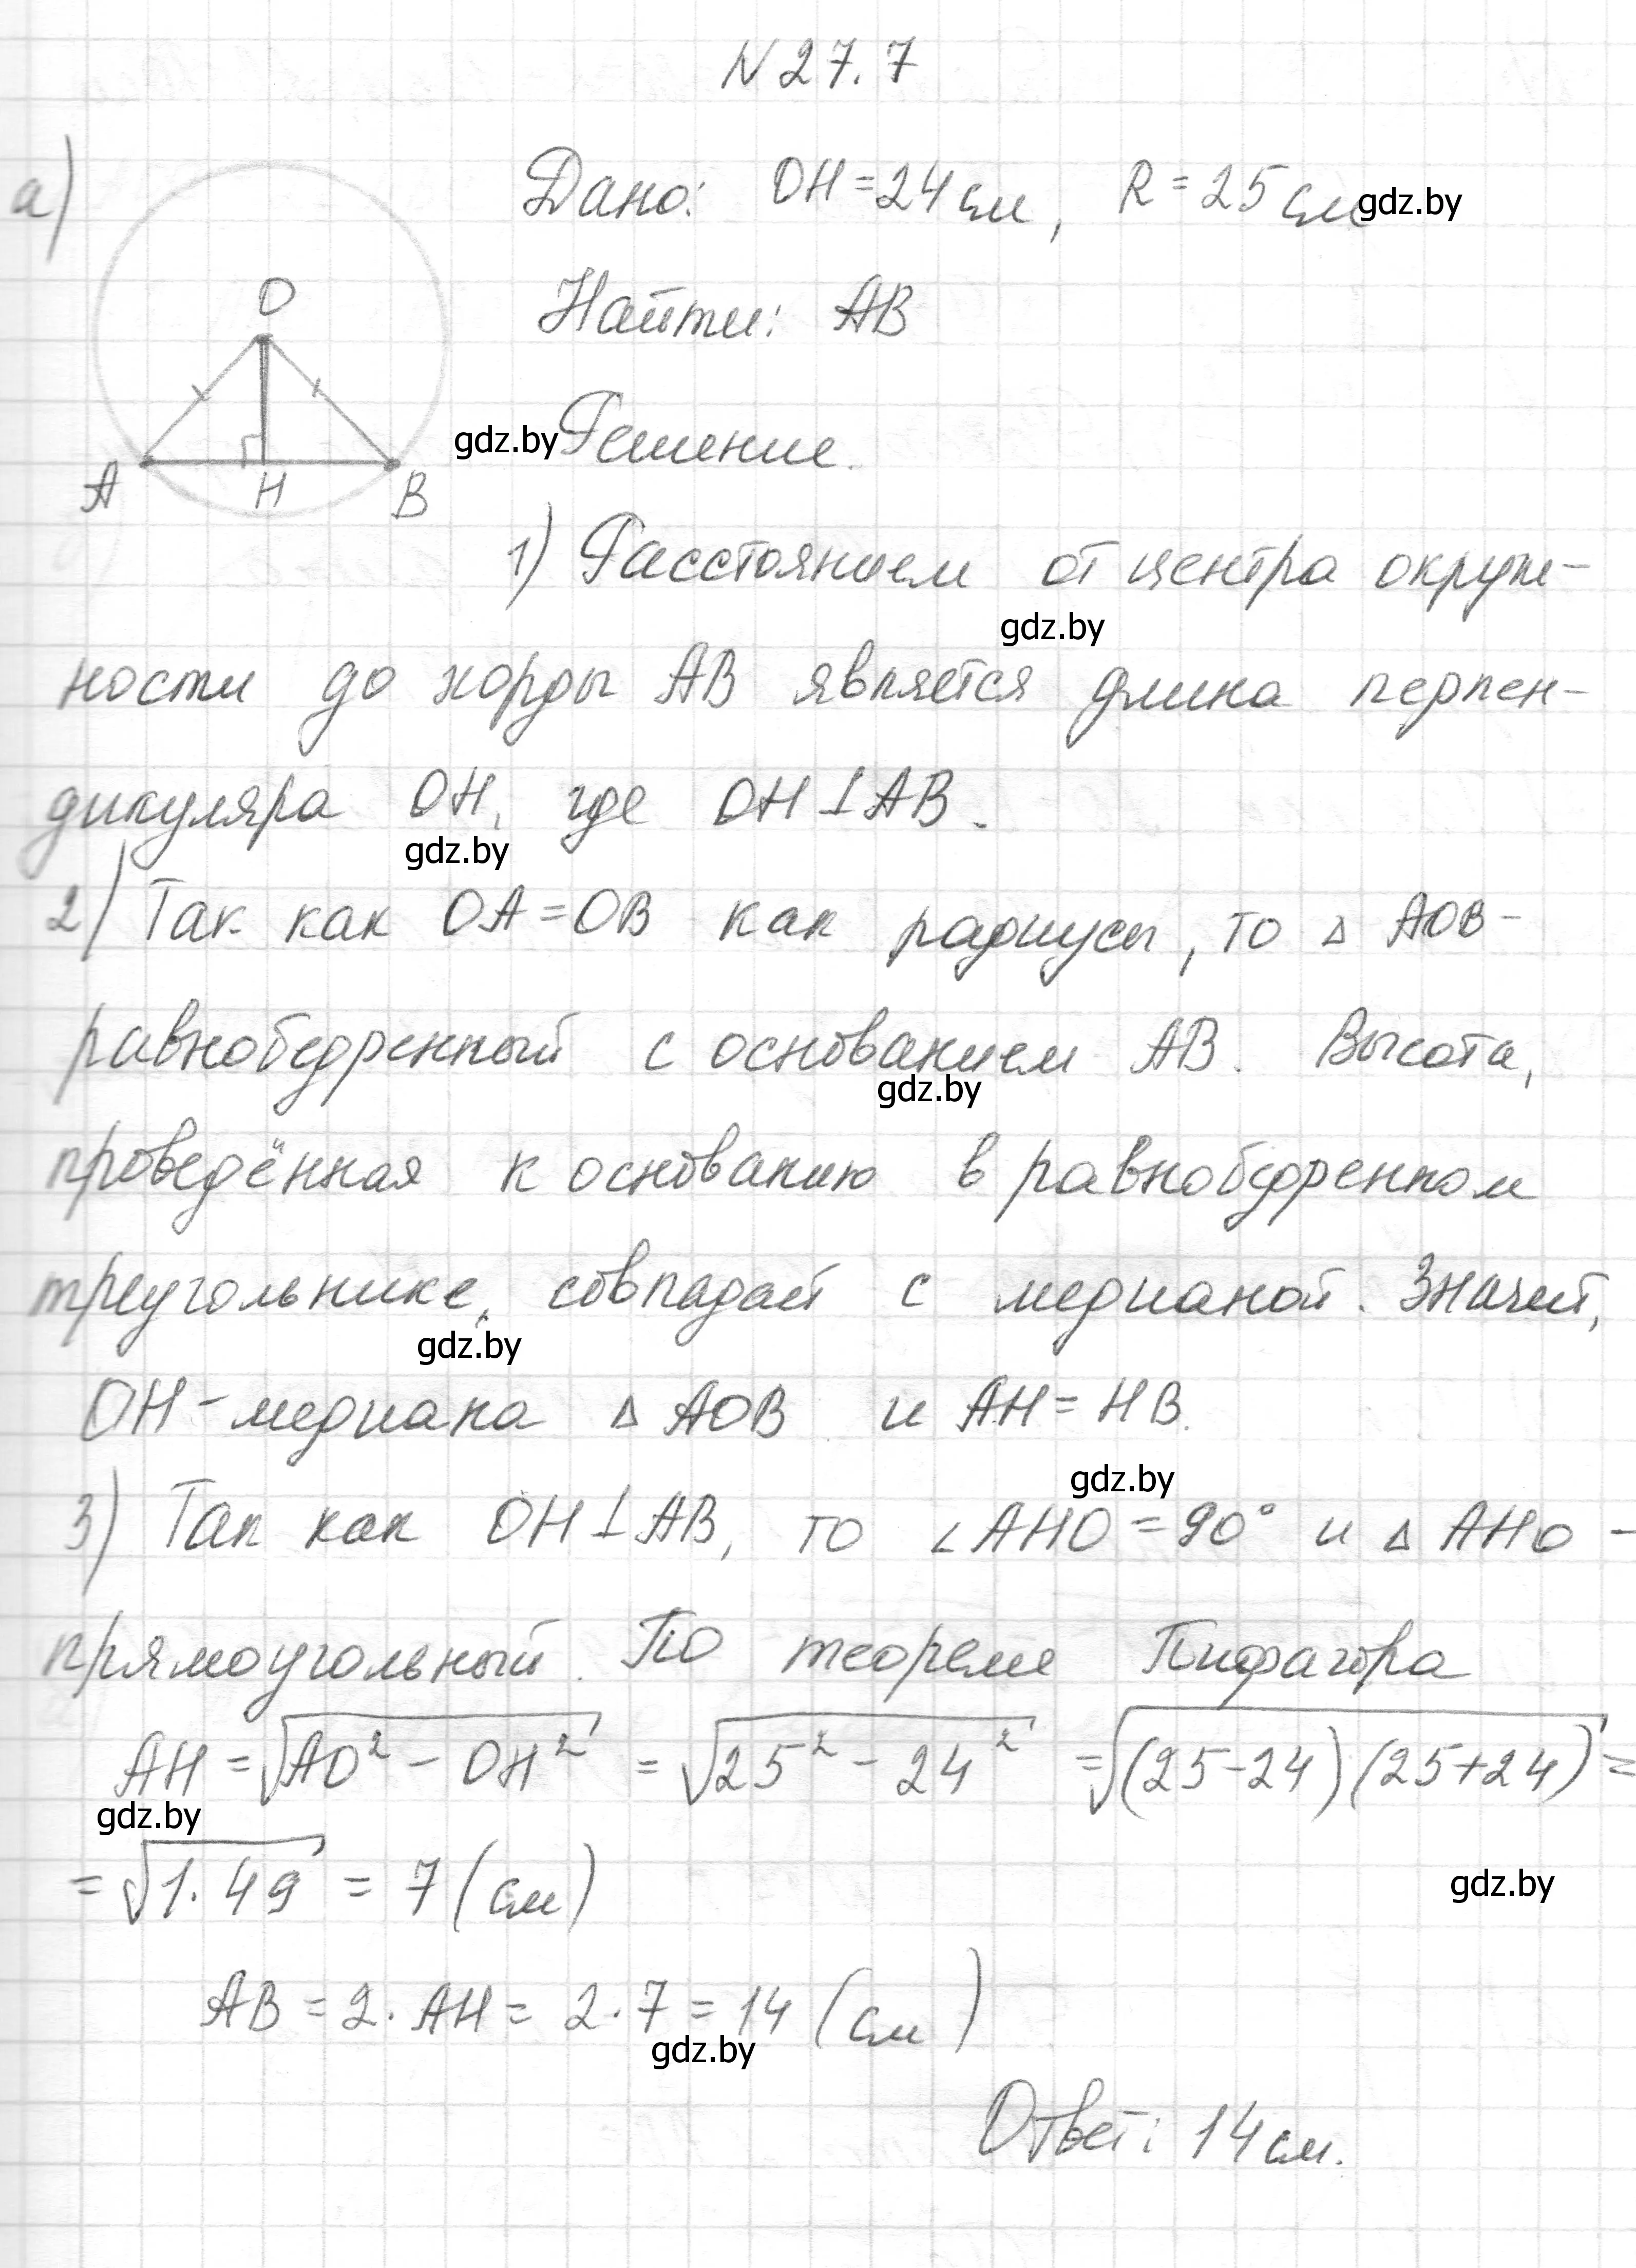 N 27.7
а)
Дано: OH = 24 см, R = 25 см
gdz.by
O
A
H
B
Найти: AB
gdz.by
Решение.
1) Расстоянием от центра окруж-
gdz.by
ности до хорды AB является длина перпен-
дикуляра OH, где OH ⊥ AB.
gdz.by
2) Так как OA = OB как радиусы, то △ AOB -
равнобедренный с основанием AB. Высота,
gdz.by
проведённая к основанию в равнобедренном
треугольнике, совпадает с медианой. Значит,
gdz.by
OH - медиана △ AOB и AH = HB.
gdz.by
3) Так как OH ⊥ AB, то ∠AHO = 90° и △ AHO -
прямоугольный. По теореме Пифагора
AH = √(AO² - OH²) = √(25² - 24²) = √((25-24)(25+24)) =
gdz.by
= √(1·49) = 7 (см)
gdz.by
AB = 2·AH = 2·7 = 14 (см)
gdz.by
Ответ: 14 см.